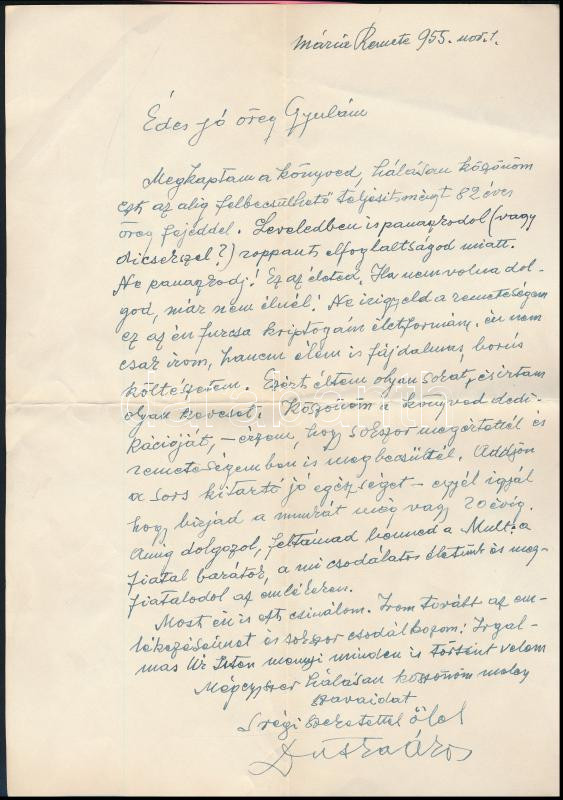 Mária Remete 955. nov. 1.
Édes jó öreg Gyulám
Megkaptam a könyved, hálásan köszönöm
ezt az alig felbecsülhető teljesitményt 82 éves
öreg fejeddel. Leveledben is panaszkodol (vagy
dicsekszel?) roppant elfoglaltságod miatt.
Ne panaszkodj! Ez az életed. Ha nem volna dol-
god, már nem élnél! Ne irigyeld a remeteségem
ez az én furcsa kriptogám életformám. én nem
csak irom, hanem élem is fájdalmas, borús
költészetem. Ezért éltem olyan sokat, és irtam
olyan keveset. Köszönöm a könyved dedi-
kációját, – érzem, hogy sokszor megértettél és
remeteségemben is megbecsültél. Addjon
a sors kitartó jó egészséget – egyél igyál
hogy birjad a munkát még vagy 20 évig.
Amig dolgozol, feltámad benned a Mult: a
fiatal barátok, a mi csodálatos életünk és meg-
fiatalodol az emlékeken.
Most én is ezt csinálom. Irom tovább az em-
lékezéseimet és sokszor csodálkozom: Irgal-
mas Úr Isten mennyi minden is történt velem
Mégegyszer hálásan köszönöm meleg
szavaidat
S régi szeretettel ölel
Dutka Ákos
darabanth